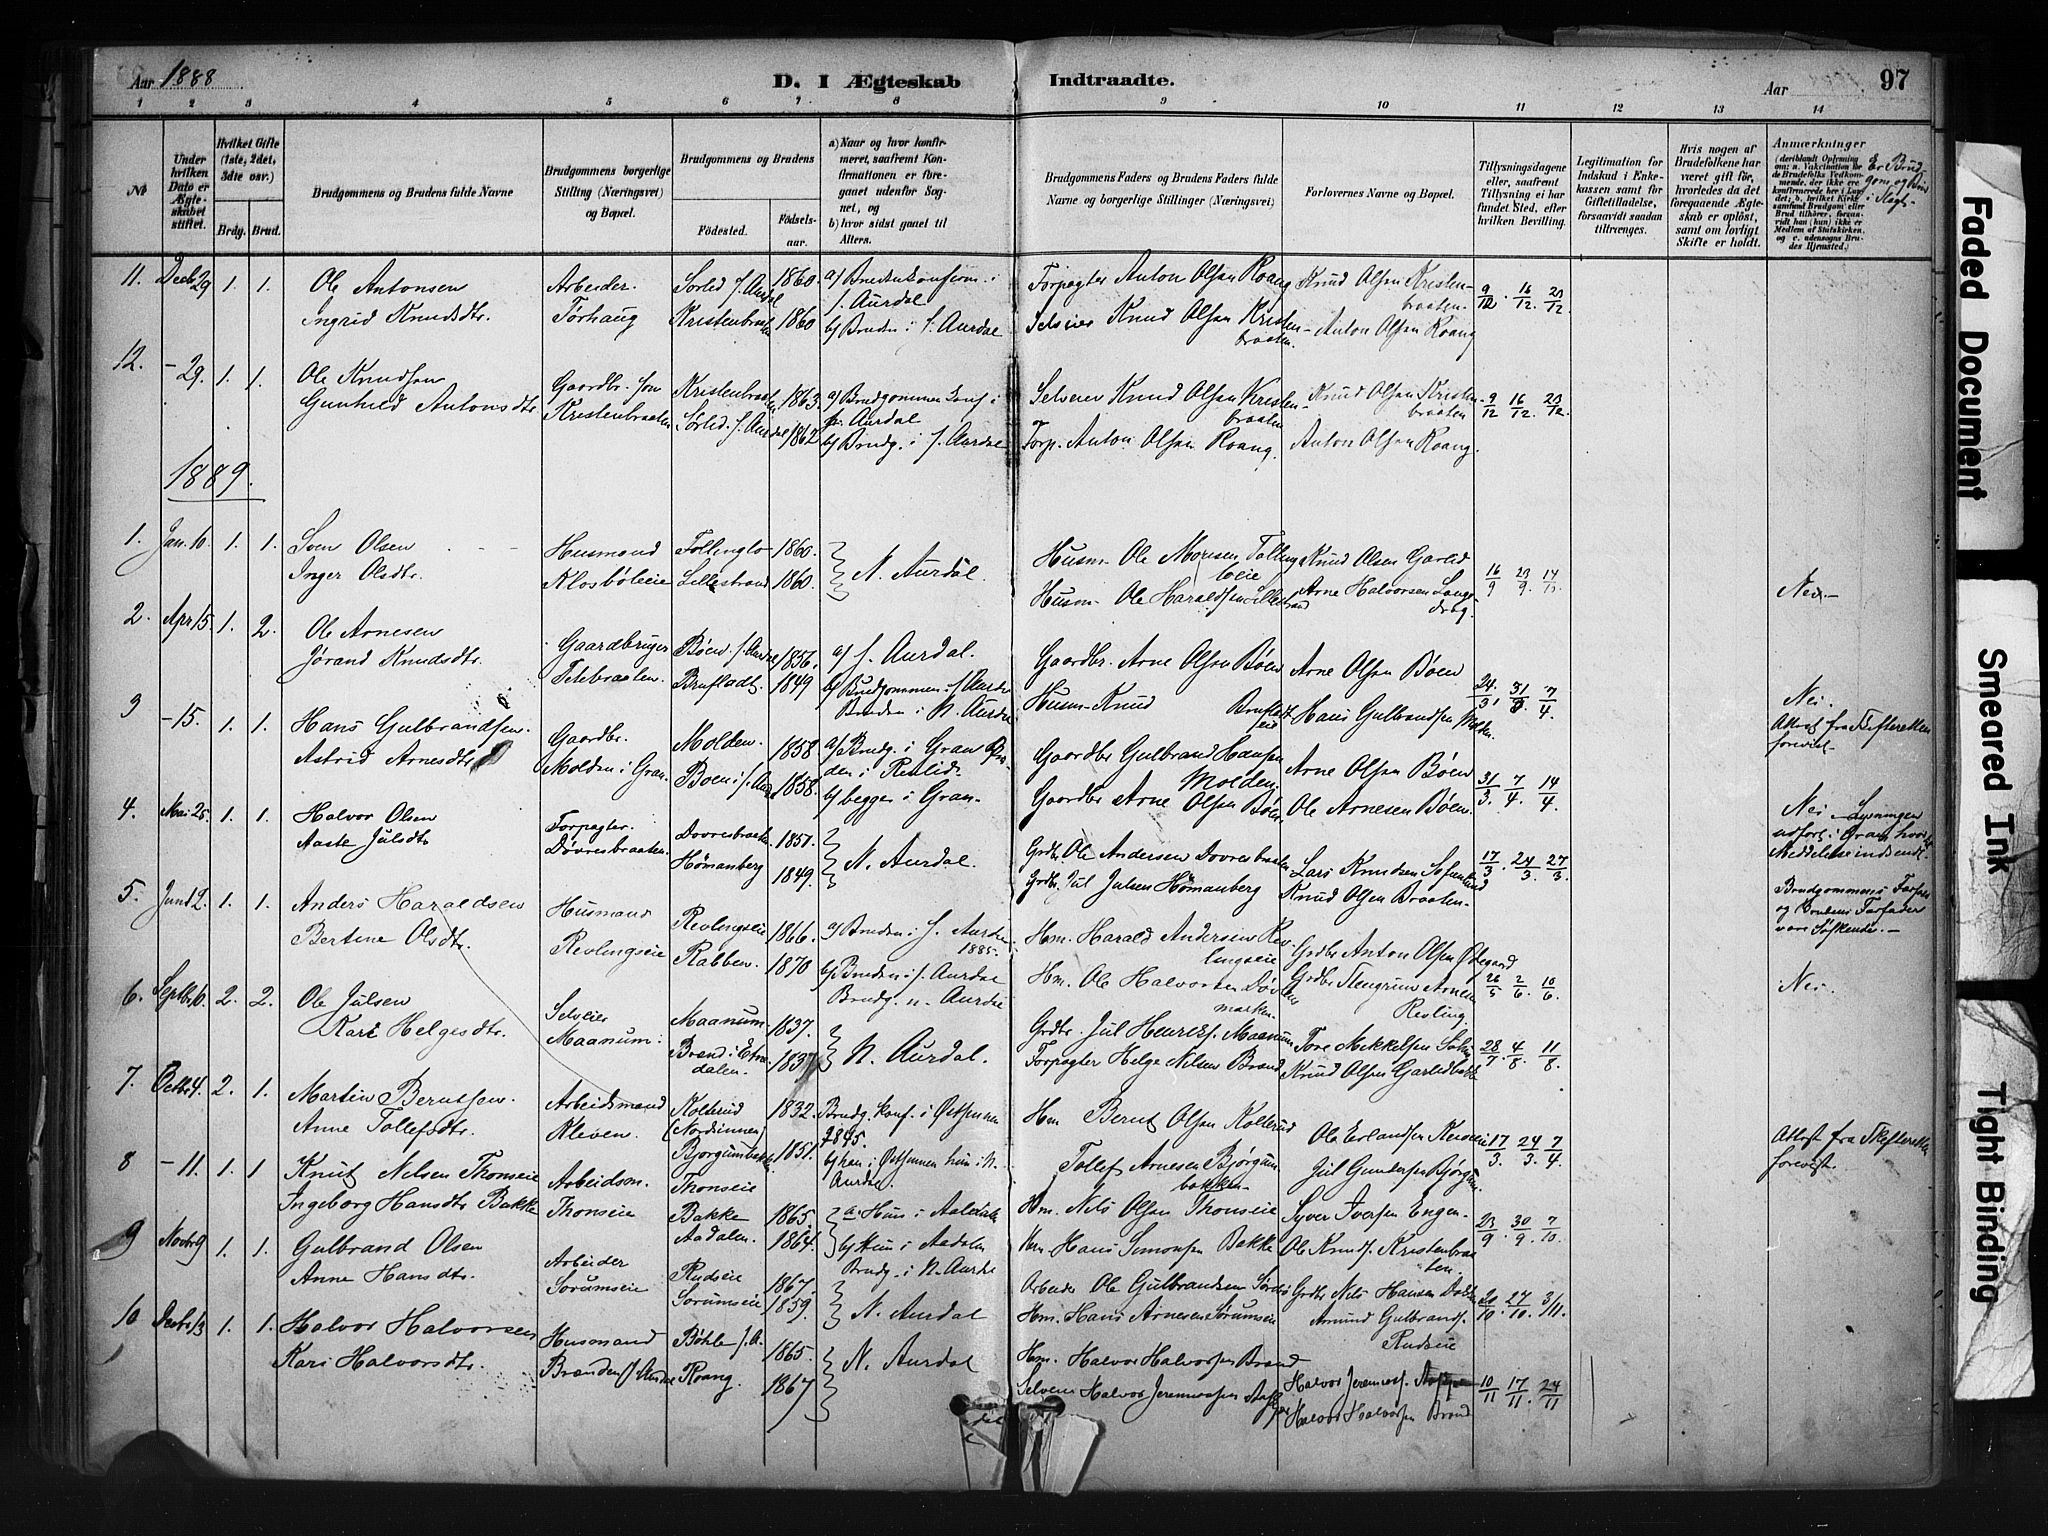 Aar 1888
D. I Ægteskab Indtraadte.
Aar
97
1 2 3 4 5 6 7 8 9 10 11 12 13 14
No
Under hvilken Dato er Ægteskabet stiftet.
Hvilket Gifte (1ste, 2det, 3dte osv.)
Brdg. Brud.
Brudgommens og Brudens fulde Navne
Brudgommens borgerlige Stilling (Næringsvei) og Bopæl.
Brudgommens og Brudens
Fødested.
Fødselsaar.
a) Naar og hvor konfirmeret, saafremt Konfirmationen er foregaaet udenfor Sognet, og
b) hvor sidst gaaet til Alters.
Brudgommens Faders og Brudens Faders fulde Navne og borgerlige Stillinger (Næringsvei)
Forlovernes Navne og Bopæl.
Tillysningsdagene eller, saafremt Tillysning ei har fundet Sted, efter hvilken Bevilling.
Legitimation for Indskud i Enkekassen samt for Giftetilladelse, forsaavidt saadan tiltrænges.
Hvis nogen af Brudefolkene har været gift før, hvorledes da det foregaaende Ægteskab er opløst, samt om lovligt Skifte er holdt.
Anmærkninger
11. Decb 29 1. 1. Ole Antonsen Arbeider Sørlid S. Aurdal 1860. a) Bruden konfirm. i Forpagter Anton Olsen Roang Knud Olsen Kristenbraaten 9/12. 16/12. 20/12
Ingrid Knudsdtr. Tørhaug Kristenbraaten 1860 S. Aurdal b) Bruden i S. Aurdal Selveier Knud Olsen Kristenbraaten. Anton Olsen Roang
12. - 29. 1. 1. Ole Knudsen Gaardbr. Søn Kristenbraaten 1863. a) Brudgommen konf. i Selveier Knud Olsen Kristenbraaten Knud Olsen Kristenbraaten 9/12 16/12. 20/12.
Gunhild Antonsdtr. Kristenbraaten Sørlid. S. Aurdal 1862 S. Aurdal b) Brudg. i S. Aurdal Forp. Anton Olsen Roang. Anton Olsen Roang.
1889.
1. Jan. 10. 1. 1. Sven Olsen Husmand 1860. N. Aurdal. Husm. Ole Knud Olsen Garlid 16/9 23/9.
Inger Olsdtr. Klosbøleie Lillestrand 1860. Husm. Ole Haraldsen Lillestrand Arne Halvorsen Nei.
2. Apr 15. 1. 2. Ole Arnesen Gaardbruger Bøen S. Aurdal 1856. a) S. Aurdal. Gaardbr. Arne Olsen Bøen Arne Olsen Bøen 24/3. 31/3. 7/4
Jørand Knudsdtr. Brufladt. 1849 b) Brudgommen i S. Aurdal Bruden i N. Aurdal. Husm. Knud Brufladteie Hans Gulbrandsen Molden. Nei. Attest fra Skifteretten forevist.
3 - 15. 1. 1. Hans Gulbrandsen Gaardbr. Molden. 1858 a) Brudg. i Gran Bruden i Gaardbr Gulbrand Hansen Molden Arne Olsen Bøen 31/3. 7/4. 14/4
Astrid Arnesdtr. Molden i Gran. Bøen i S. Aurdal 1858. b) begge i Gran. Gaardbr Arne Olsen Bøen. Ole Arnesen Bøen. Nei Lysningen udført i Gran hvorfra Meddelelse indsendt.
4. Mai 25. 1. 1. Halvor Olsen Forpagter. Dovresbraaten 1851. N. Aurdal. Grdbr. Ole Andersen Dovresbraaten Lars Knudsen 17/3. 24/3. 27/3.
Aaste Julsdtr Dovresbraaten. Hømanberg 1849. Grdbr. Jul Julsen Hømanberg Knud Olsen Braaten. Brudgommens Farfar og Brudens Farfader vare Søskende.
5. Juni 2. 1. 1. Anders Haraldsen Husmand Revlingseie 1866. a) Bruden i S. Aurdal 1885. Hm. Harald Andersen Revlingseie Grdbr Anton Olsen Ødegaard 26/5 2/6. 10/6.
Bertine Olsdtr. Revlingseie Rabben. 1870 b) Bruden i S. Aurdal Brudg. N. Aurdal Hm. Ole Halvorsen Grdbr Stengrim Arnesen Revling. Nei.
6. Septbr 6. 2. 2. Ole Julsen Selveier Maanum 1837. N. Aurdal. Grdbr. Jul Henriks. Maanum Tore Mikkelsen 28/7 4/8. 11/8.
Kari Helgesdtr. Maanum. Brænd i Etnedalen. 1837 Forpagter Helge Nilsen Brænd Knud Olsen
7. Octbr 4. 2. 1. Martin Berntsen. Arbeidsmand Kolterud (Nordsinnen) 1832. Brudg. konf. i Østsinnen 1845. Hm Bernt Olsen Kolterud Ole Erlandsen 17/3. 24/3. 7/4
Anne Tollefsdtr. Kleven. Bjørgumbakke. 1851. b) han i Østsinnen hun i N. Aurdal. Tollef Arnesen Bjørgumbakken. Jul Gundersen Bjørgum. Attest fra Skifteretten forevist.
8 - 11. 1. 1 Knut Nilsen Thonseie Arbeidsm. Thonseie 1865. a: Hun i Aadalen Hm. Nils Olsen Thonseie Syver Iversen Engen. 23/9. 30/9. 7/10.
Ingeborg Hansdtr Bakke Thonseie Bakke Aadalen. 1864. b) Hun i Aadalen Brudg. i N. Aurdal Hm. Hans Simonsen Bakke Ole Knuds. Kristenbraaten.
9 Novbr 9 1. 1. Gulbrand Olsen Arbeider Rudseie 1867. N. Aurdal Arbeider Ole Gulbrandsen Grdbr Nils Hansen 20/10. 27/10. 3/11.
Anne Hansdtr. Sørumseie Sørumseie 1859. Hm. Hans Arnesen Sørumseie Amund Gulbrands. Rudseie
10 Decbr 13 1. 1. Halvor Halvorsen Husmand Bøhle S. A. 1865. N. Aurdal Hm. Halvor Halvorsen Brænd Halvor Jeremiass. 10/11 17/11. 24/11
Kari Halvorsdtr. Brænden S Aurdal Roang. 1867 Selveier Halvor Jeremiassen Halvor Halvorsen Brænd
Faded Document
Smeared Ink
Tight Binding